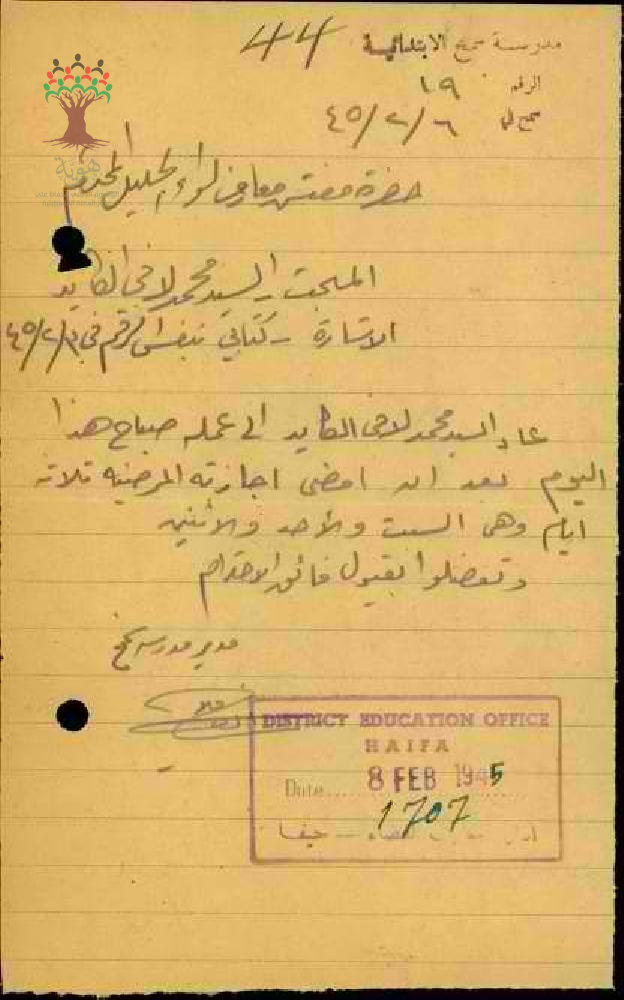 44
مدرسة سمخ الابتدائية
الرقم ١٩
سمخ في ٤٥/٢/٦
هوية
حضرة مفتش معارف لواء الجليل المحترم
المبحث - السيد محمد لافي الكايد
الاشارة - كتابي بنفس الرقم في ٤٥/٢/
عاد السيد محمد لافي الكايد الى عمله صباح هذا
اليوم بعد ان امضى اجازته المرضية ثلاثة
ايام وهي السبت والاحد والاثنين
وتفضلوا بقبول فائق الاحترام
مدير مدرسة سمخ
DISTRICT EDUCATION OFFICE
HAIFA
Date.... 8 FEB 1945
1707
حيفا